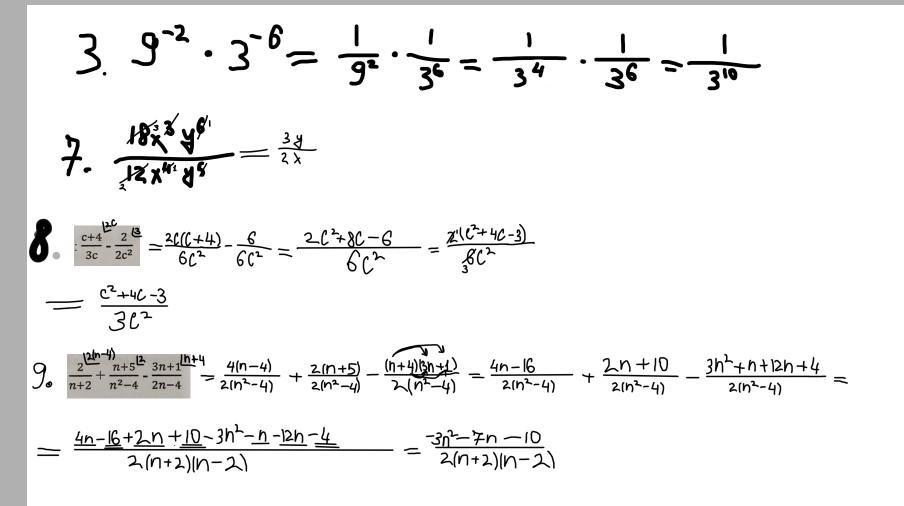 3. 9⁻² · 3⁻⁶ = 1/9² · 1/3⁶ = 1/3⁴ · 1/3⁶ = 1/3¹⁰
7. 18x³y⁶/12x⁴y⁵ = 3y/2x
8. (c+4)/3c - 2/2c² = 2c(c+4)/6c² - 6/6c² = (2c²+8c-6)/6c² = 2(c²+4c-3)/6c²
= (c²+4c-3)/3c²
9. 2/(n+2) + (n+5)/(n²-4) - (3n+1)/(2n-4) = 4(n-4)/2(n²-4) + 2(n+5)/2(n²-4) - (n+4)(3n+1)/2(n²-4) = (4n-16)/2(n²-4) + (2n+10)/2(n²-4) - (3n²+n+12n+4)/2(n²-4) =
= (4n-16+2n+10-3n²-n-12n-4)/2(n+2)(n-2) = (-3n²-7n-10)/2(n+2)(n-2)